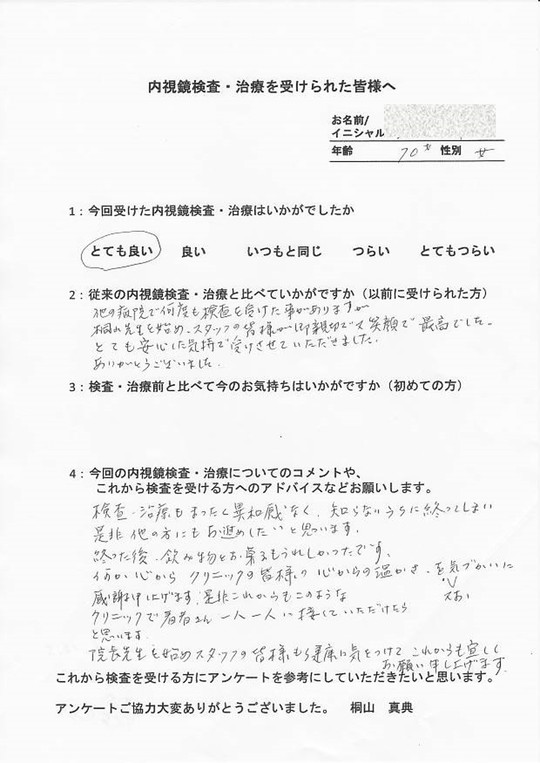 内視鏡検査・治療を受けられた皆様へ
お名前/
イニシャル
年齢 70才 性別 女
1：今回受けた内視鏡検査・治療はいかがでしたか
とても良い 良い いつもと同じ つらい とてもつらい
2：従来の内視鏡検査・治療と比べていかがですか（以前に受けられた方）
他の病院で何度も検査を受けた事がありますが
桐山先生を始め、スタッフの皆様が御親切で又笑顔で最高でした。
とても安心した気持で受けさせていただきました。
ありがとうございました。
3：検査・治療前と比べて今のお気持ちはいかがですか（初めての方）
4：今回の内視鏡検査・治療についてのコメントや、
これから検査を受ける方へのアドバイスなどお願いします。
検査・治療もまったく異和感なく、知らないうちに終ってしまい
是非他の方にもお進めしたいと思います。
終った後、飲み物とお菓子もうれしかったです。
何か心からクリニックの皆様の心からの温かさ、を気づかいに
感謝申し上げます。是非これからもこのような
クリニックで患者さん一人一人に接していただけたら
と思います。
院長先生を始めスタッフの皆様も健康に気をつけてこれからも宜しく
お願い申し上げます。
これから検査を受ける方にアンケートを参考にしていただきたいと思います。
アンケートご協力大変ありがとうございました。 桐山 真典